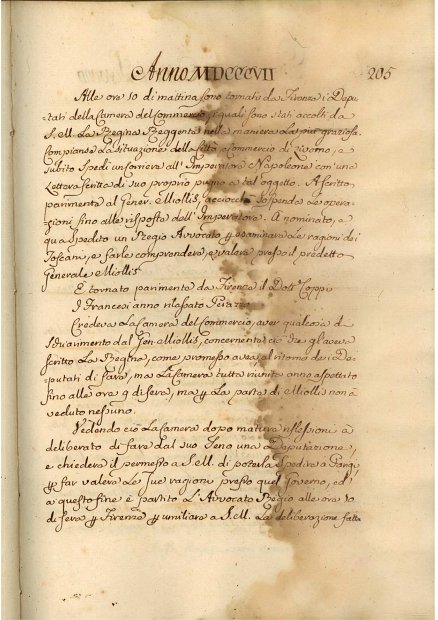 Anno MDCCCVII 205
Alle ore 10 di mattina sono tornati da Firenze i Depu
tati della Camera del Commercio, i quali sono stati accolti da
S. M. La Regina Reggente nella maniera La più graziosa
Compianse La Situazione della Città e Commercio di Livorno, e
subito Spedì un Corriere all' Imperatore Napoleone con una
Lettera scritta di suo proprio pugno a tal' oggetto. A scritto
parimente al Gener. Miollis, acciocchè Sospenda Le opera-
zioni fino alle risposte dell' Imperatore. A nominato, e
qua spedito un Regio Avvocato p esaminare Le ragioni dei
Toscani, e farle comprendere, e valere presso il predetto
Generale Miollis
E tornato parimente da Firenze il Dott. Coppi
I Francesi anno rilassato
Credeva La Camera del Commercio, aver qualcosa d
Schiarimento dal Gen. Miollis, concernente ciò che gl' aveva
scritto La Regina, come promesse avea al ritorno dei De-
putati di fare, ma La Camera tutta riunita anno aspettato
fino alle ora 9 di sera, ma p La parte di Miollis non à
veduto nessuno.
Vedendo ciò La Camera dopo mature riflessioni à
deliberato di fare dal suo Seno una Deputazione,
e chiedere il permesso a S. M. di poterla Spedire a Parigi
p far valere Le Sue ragioni presso quel Governo, ed
a questo fine è partito L' Avvocato Regio alle ore 10
di sera p Firenze p umiliare a S. M. La deliberazione fatta